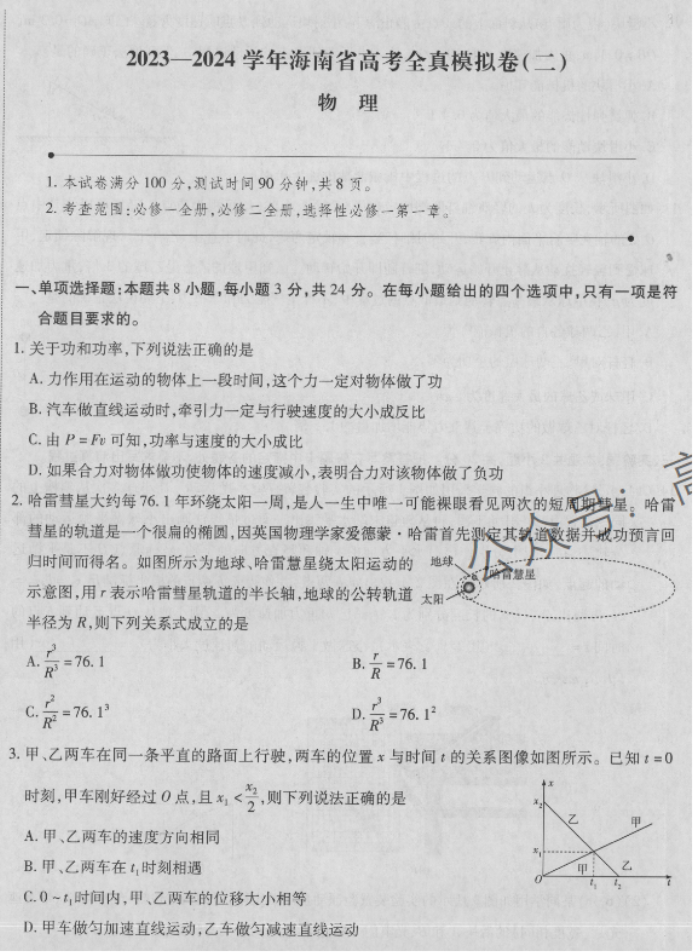 2023—2024 学年海南省高考全真模拟卷(二)
物 理
1. 本试卷满分 100 分,测试时间 90 分钟,共 8 页。
2. 考查范围:必修一全册,必修二全册,选择性必修一第一章。
一、单项选择题:本题共 8 小题,每小题 3 分,共 24 分。在每小题给出的四个选项中,只有一项是符
合题目要求的。
1. 关于功和功率,下列说法正确的是
A. 力作用在运动的物体上一段时间,这个力一定对物体做了功
B. 汽车做直线运动时,牵引力一定与行驶速度的大小成反比
C. 由 P = Fv 可知,功率与速度的大小成比
D. 如果合力对物体做功使物体的速度减小,表明合力对该物体做了负功
2. 哈雷彗星大约每 76. 1 年环绕太阳一周,是人一生中唯一可能裸眼看见两次的短周期彗星。哈雷
彗星的轨道是一个很扁的椭圆,因英国物理学家爱德蒙·哈雷首先测定其轨道数据并成功预言回
归时间而得名。如图所示为地球、哈雷彗星绕太阳运动的
示意图,用 r 表示哈雷彗星轨道的半长轴,地球的公转轨道
半径为 R,则下列关系式成立的是
地球
哈雷慧星
太阳
A. r³/R³ = 76. 1
B. r/R = 76. 1
C. r²/R² = 76. 1³
D. r³/R³ = 76. 1²
3. 甲、乙两车在同一条平直的路面上行驶,两车的位置 x 与时间 t 的关系图像如图所示。已知 t = 0
时刻,甲车刚好经过 O 点,且 x₁ < x₂/2,则下列说法正确的是
A. 甲、乙两车的速度方向相同
B. 甲、乙两车在 t₁ 时刻相遇
C. 0 ~ t₁ 时间内,甲、乙两车的位移大小相等
D. 甲车做匀加速直线运动,乙车做匀减速直线运动
x
x₂
乙
甲
x₁
甲
乙
O
t₁
t₂
t
公众号:高